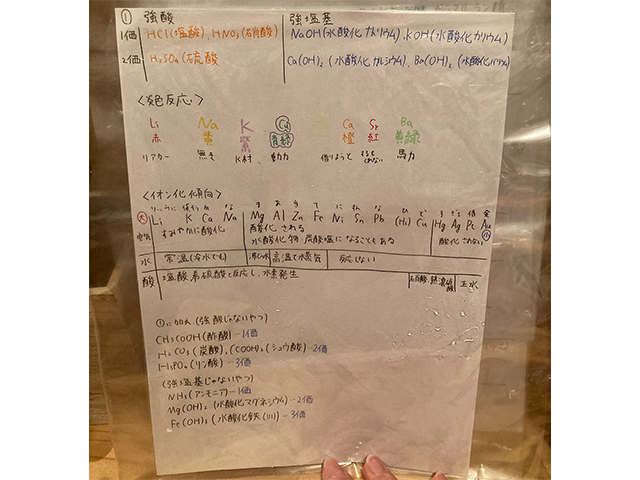 ① 強酸 強塩基
1価 HCl(塩酸)、HNO3(硝酸) NaOH(水酸化ナトリウム)、KOH(水酸化カリウム)
2価 H2SO4(硫酸) Ca(OH)2(水酸化カルシウム)、Ba(OH)2(水酸化バリウム)
〈炎色反応〉
Li Na K Cu Ca Sr Ba
赤 黄 紫 青緑 橙 紅 黄緑
リアカー 無き K村 動力 借りようと するも 馬力
〈イオン化傾向〉
大 Li K Ca Na Mg Al Zn Fe Ni Sn Pb (H2) Cu Hg Ag Pt Au 小
すみやかに酸化 酸化される 酸化されない
水酸化物・炭酸塩になることもある
水 常温(冷水でも) 沸とう水 高温で水蒸気 反応しない
酸 塩酸・希硫酸と反応し、水素発生 硝酸、熱濃硫酸 王水
①に加え(強酸じゃないやつ)
CH3COOH(酢酸)―1価
H2CO3(炭酸)、(COOH)2(シュウ酸)―2価
H3PO4(リン酸)―3価
(強塩基じゃないやつ)
NH3(アンモニア)―1価
Mg(OH)2(水酸化マグネシウム)―2価
Fe(OH)3(水酸化鉄(III))―3価